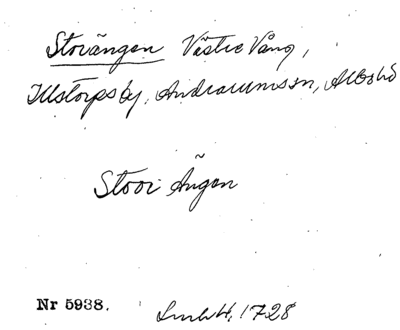 Storängen Västre Vång,
Illstorps by, Andrarums sn, Albo hd
Stoor Ängen
Nr 5938. LmhH, 1728